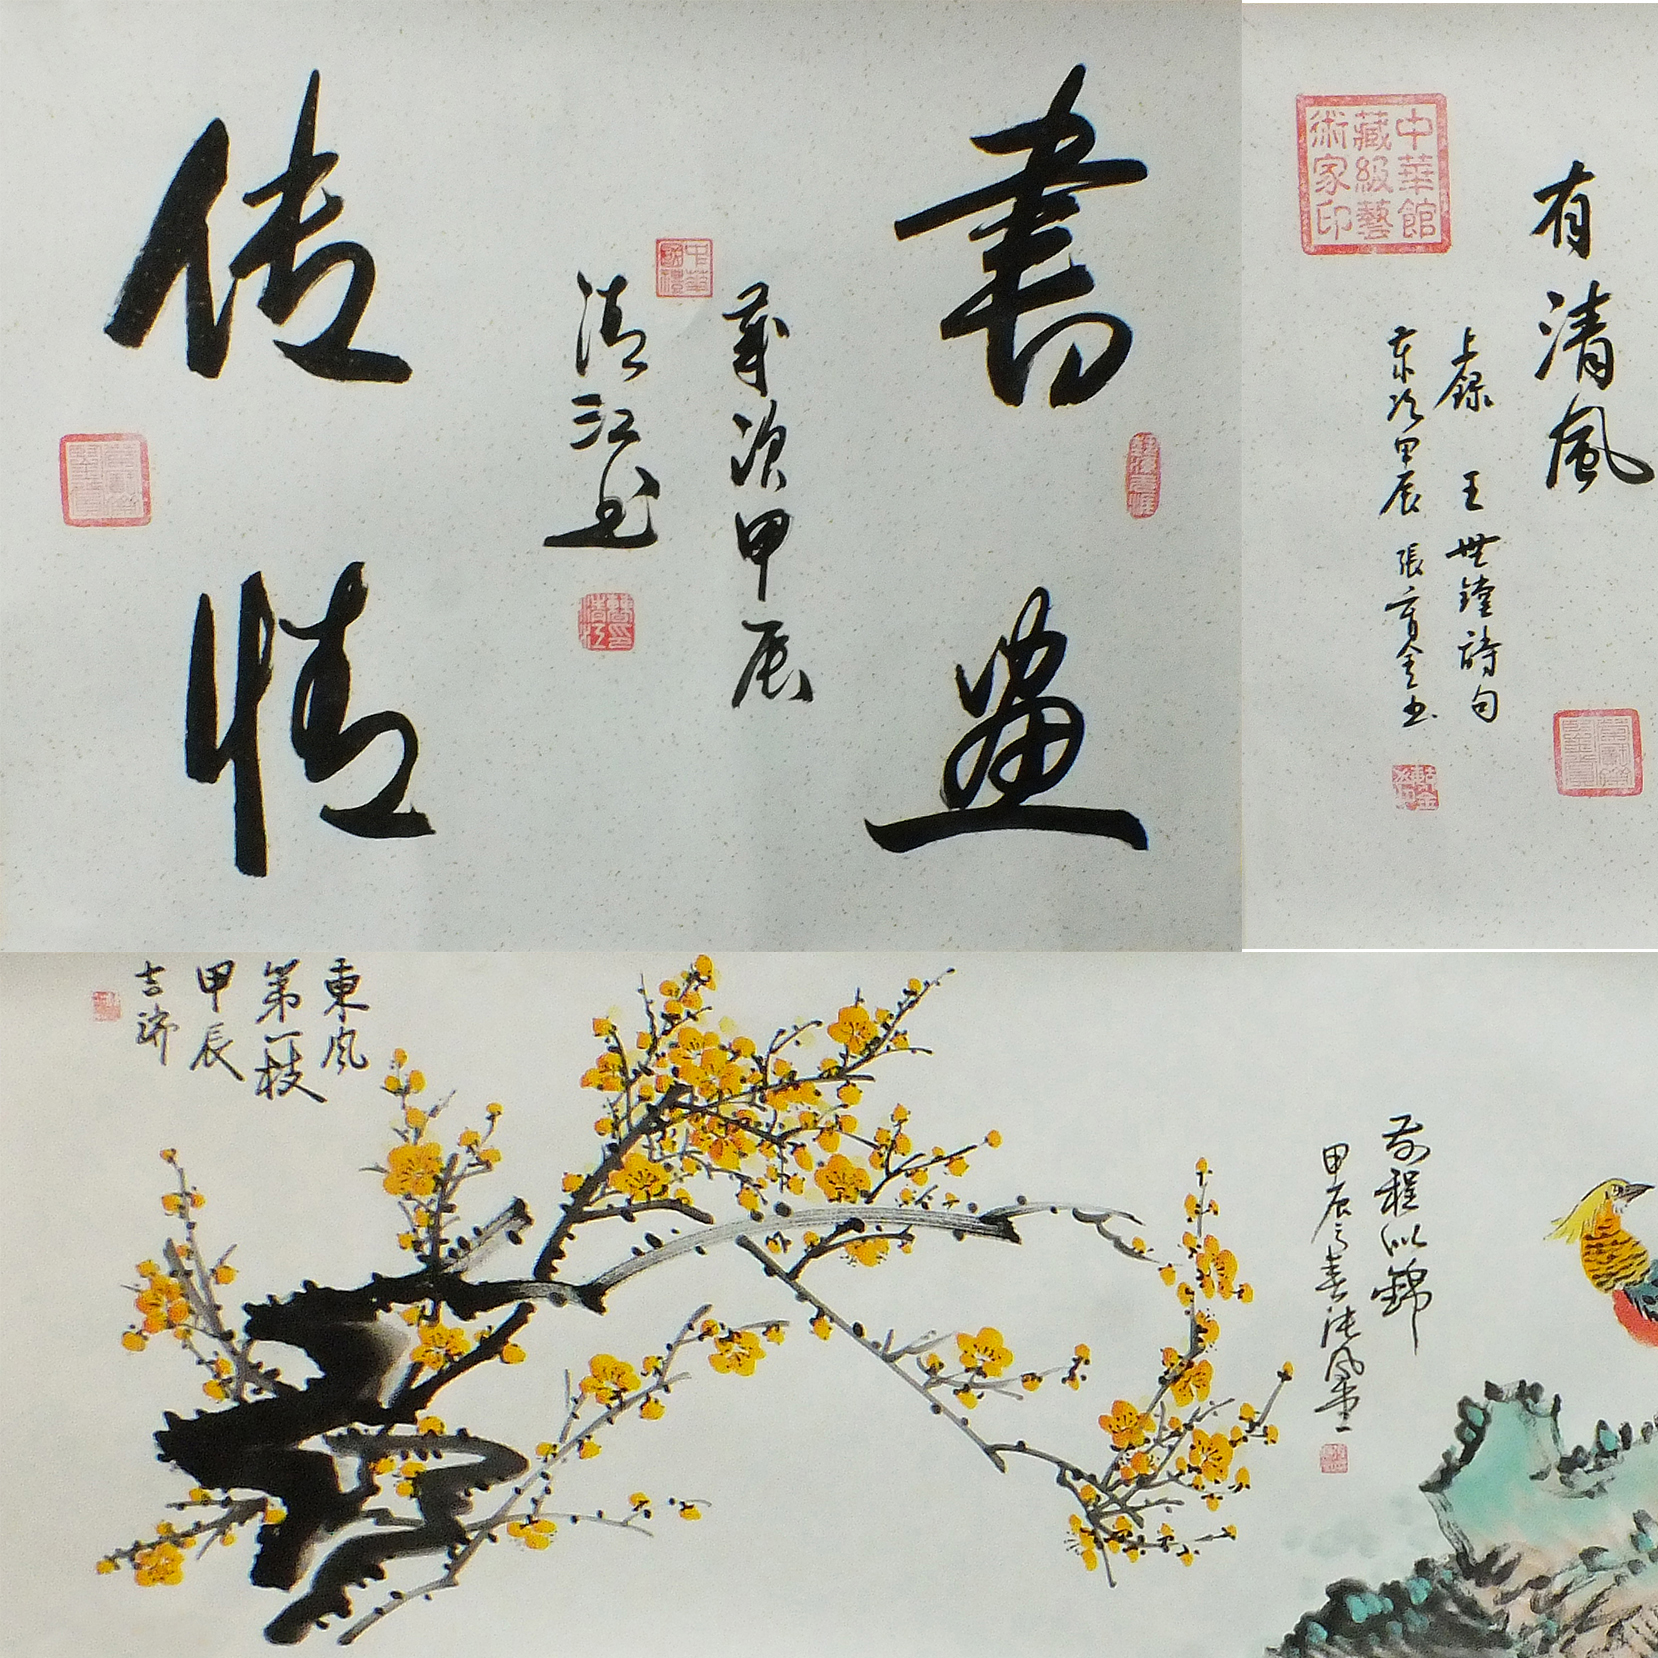 書畫
傳情
歲次甲辰
清江书
中華國禮
有清風
上錄 王世鏜詩句
歲次甲辰 張金书
中華館
藏級藝
術家印
東風
第一枝
甲辰
前程似錦
甲辰之春